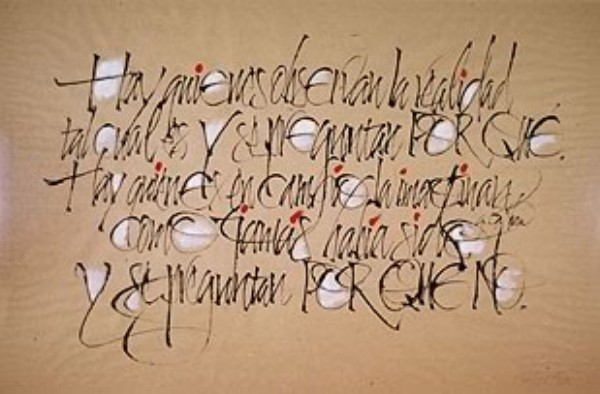 Hay quienes observan la realidad
tal cual es y se preguntan POR QUÉ.
Hay quienes en cambio la imaginan
como jamás había sido
y se preguntan POR QUÉ NO.